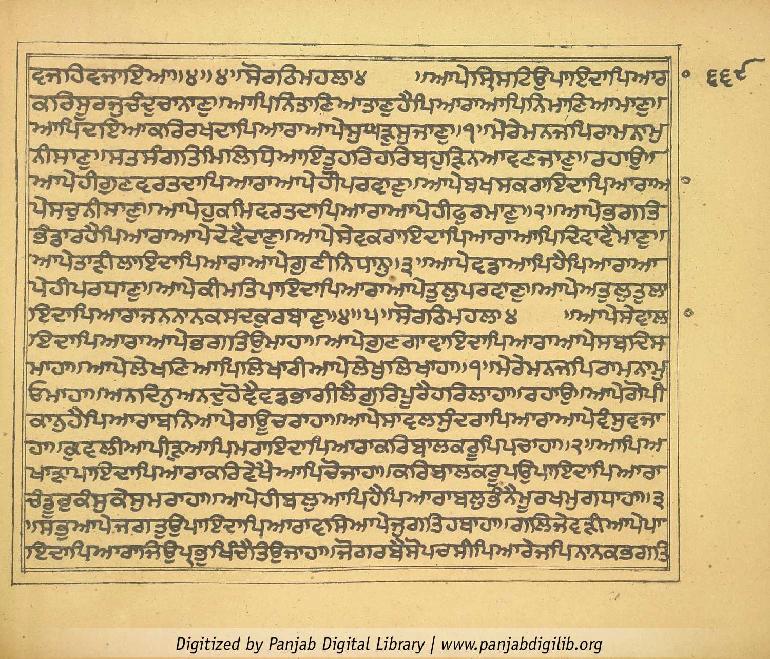 ਵਜਾਹਿਵਜਾਇਆ॥੪॥੪॥ਸੋਰਠਿਮਹਲਾ੪ ॥ਆਪੇਸ੍ਰਿਸਟਿਉਪਾਇਦਾਪਿਆਰਾ ੬੬੯
ਕਰਿਸੂਰਜੁਚੰਦੁਚਾਨਾਣੁ॥ਆਪਿਨਿਤਾਣਿਆਤਾਣੁਹੈਪਿਆਰਾਆਪਿਨਿਮਾਣਿਆਮਾਣੁ॥
ਆਪਿਦਇਆਕਰਿਰਖਦਾਪਿਆਰਾਆਪੇਸੁਘੜੁਸੁਜਾਣੁ॥੧॥ਮੇਰੇਮਨਜਪਿਰਾਮਨਾਮੁ
ਨੀਸਾਣੁ॥ਸਤਸੰਗਤਿਮਿਲਿਧਿਆਇਤੂਹਰਿਹਰਿਬਹੁੜਿਨਆਵਣਜਾਣੁ॥ਰਹਾਉ॥
ਆਪੇਹੀਗੁਣਵਰਤਦਾਪਿਆਰਾਆਪੇਹੀਪਰਵਾਣੁ॥ਆਪੇਬਖਸਕਰਾਇਦਾਪਿਆਰਾਆ
ਪੇਸਚੁਨੀਸਾਣੁ॥ਆਪੇਹੁਕਮਿਵਰਤਦਾਪਿਆਰਾਆਪੇਹੀਫੁਰਮਾਣੁ॥੨॥ਆਪੇਭਗਤਿ
ਭੰਡਾਰਹੈਪਿਆਰਾਆਪੇਦੇਵੈਦਾਣੁ॥ਆਪੇਸੇਵਕਰਾਇਦਾਪਿਆਰਾਆਪਿਦਿਵਾਵੈਮਾਣੁ॥
ਆਪੇਤਾੜੀਲਾਇਦਾਪਿਆਰਾਆਪੇਗੁਣੀਨਿਧਾਨੁ॥੩॥ਆਪੇਵਡਾਆਪਿਹੈਪਿਆਰਾਆ
ਪੇਹੀਪਰਧਾਣੁ॥ਆਪੇਕੀਮਤਿਪਾਇਦਾਪਿਆਰਾਆਪੇਤੁਲੁਪਰਵਾਣੁ॥ਆਪੇਅਤੁਲੁਤੁਲਾ
ਇਦਾਪਿਆਰਾਜਨਨਾਨਕਸਦਕੁਰਬਾਣੁ॥੪॥੫॥ਸੋਰਠਿਮਹਲਾ੪ ॥ਆਪੇਸੇਵਾਲਾ
ਇਦਾਪਿਆਰਾਆਪੇਭਗਤਿਉਮਾਹਾ॥ਆਪੇਗੁਣਗਾਵਾਇਦਾਪਿਆਰਾਆਪੇਸਬਦਿਸ
ਮਾਹਾ॥ਆਪੇਲੇਖਣਿਆਪਿਲਿਖਾਰੀਆਪੇਲੇਖੁਲਿਖਾਹਾ॥੧॥ਮੇਰੇਮਨਜਪਿਰਾਮਨਾਮੁ
ਓਮਾਹਾ॥ਅਨਦਿਨੁਅਨਦੁਹੋਵੈਵਡਭਾਗੀਲੈਗੁਰਿਪੂਰੈਹਰਿਲਾਹਾ॥ਰਹਾਉ॥ਆਪੇਗੋਪੀ
ਕਾਨੁਹੈਪਿਆਰਾਬਨਿਆਪੇਗਊਚਰਾਹਾ॥ਆਪੇਸਾਵਲਸੁੰਦਰਾਪਿਆਰਾਆਪੇਵੰਸੁਵਜਾ
ਹਾ॥ਕੁਵਲੀਆਪੀੜੁਆਪਿਮਰਾਇਦਾਪਿਆਰਾਕਰਿਬਾਲਕਰੂਪਿਪਚਾਹਾ॥੨॥ਆਪਿਅ
ਖਾੜਾਪਾਇਦਾਪਿਆਰਾਕਰਿਵੇਖੈਆਪਿਚੋਜਾਹਾ॥ਕਰਿਬਾਲਕਰੂਪਉਪਾਇਦਾਪਿਆਰਾ
ਚੰਡੂਰੁਕੰਸੁਕੇਸੁਮਰਾਹਾ॥ਆਪੇਹੀਬਲੁਆਪਿਹੈਪਿਆਰਾਬਲੁਭੰਨੈਮੂਰਖਮੁਗਧਾਹਾ॥੩
॥ਸਭੁਆਪੇਜਗਤੁਉਪਾਇਦਾਪਿਆਰਾਵਸਿਆਪੇਜੁਗਤਿਹਥਾਹਾ॥ਗਲਿਜੇਵੜੀਆਪੇਪਾ
ਇਦਾਪਿਆਰਾਜਿਉਪ੍ਰਭੁਖਿੰਚੈਤਿਉਜਾਹਾ॥ਜੋਗਰਬੈਸੋਪਚਸੀਪਿਆਰੇਜਪਿਨਾਨਕਭਗਤਿ
Digitized by Panjab Digital Library | www.panjabdigilib.org